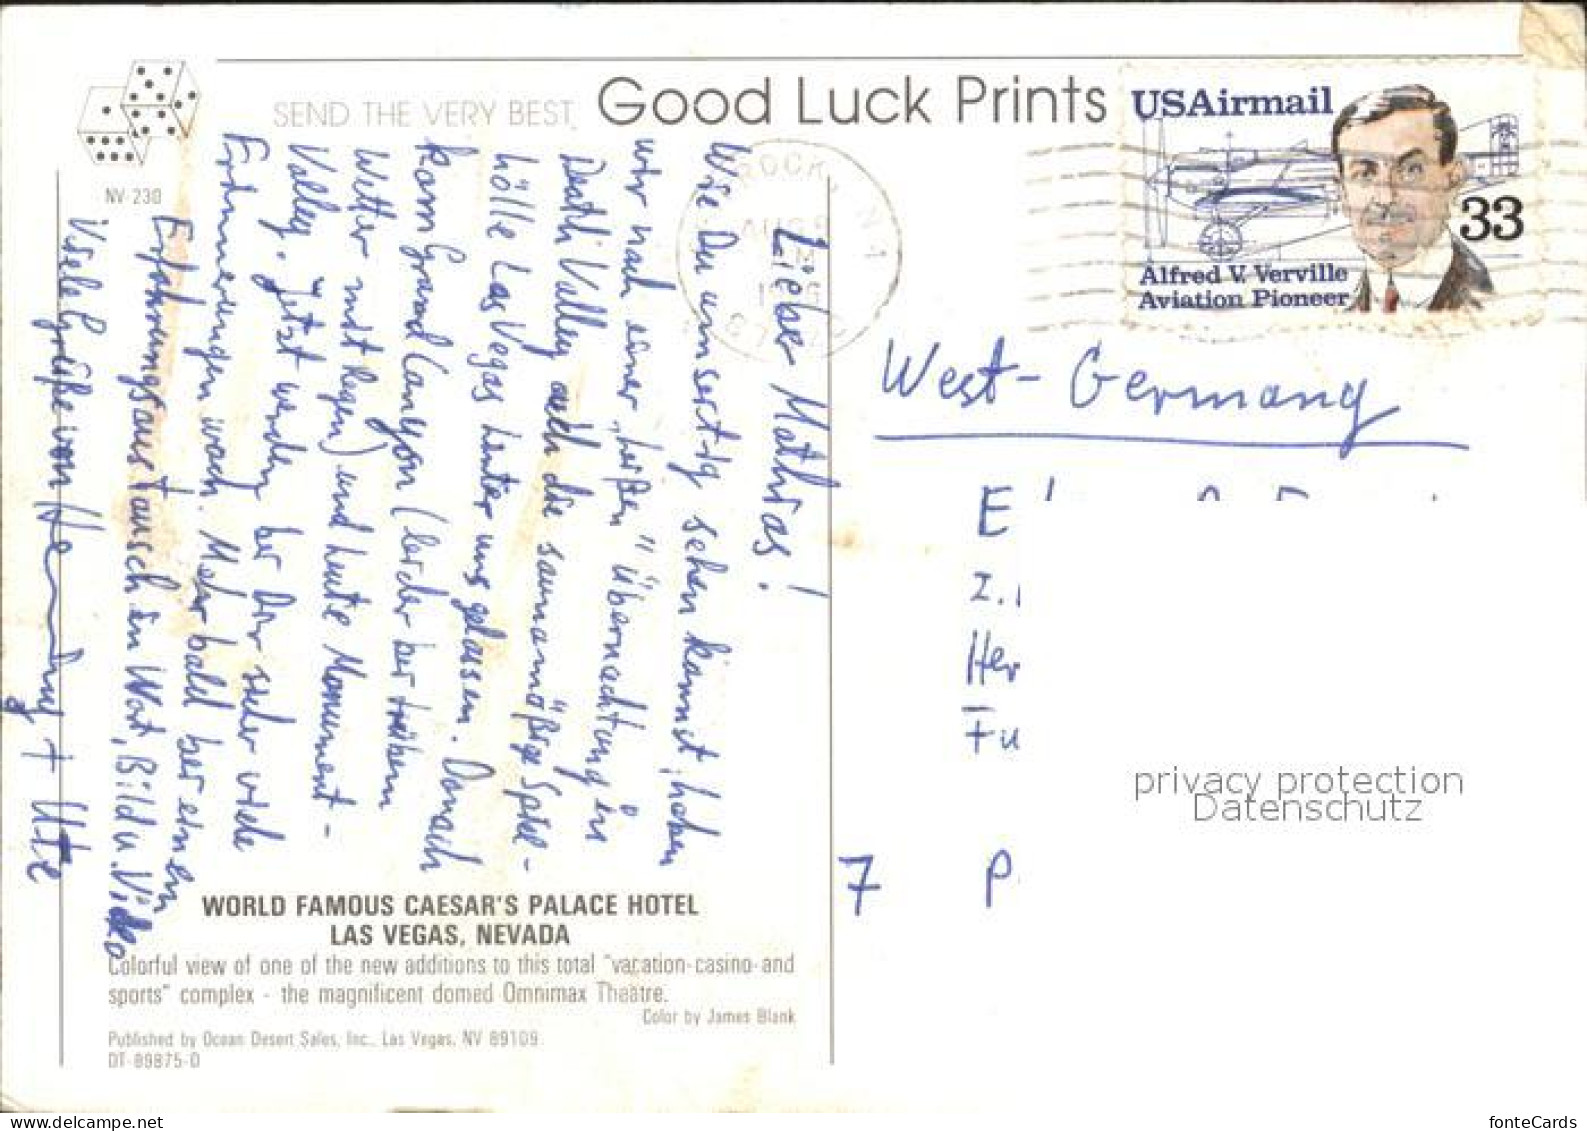 SEND THE VERY BEST. Good Luck Prints
NV-230
USAirmail
33
Alfred V. Verville
Aviation Pioneer
AUG 8
Lieber Mathias!
Wie Du unsertig sehen kannst, haben
wir nach einer "heißen" Übernachtung im
Death Valley auch die saumäßige Spiel-
hölle Las Vegas hinter uns gelassen. Danach
kam Grand Canyon (leider bei trübem
Wetter mit Regen) und heute Monument-
Valley. Jetzt werden bei Dir sicher viele
Erinnerungen wach. Mehr bald bei einem
Erfahrungsaustausch in Wort, Bild u. Video
Viele Grüße von
+ Ute
West-Germany
E
Z.
Her
Fu
7 P
privacy protection
Datenschutz
WORLD FAMOUS CAESAR'S PALACE HOTEL
LAS VEGAS, NEVADA
Colorful view of one of the new additions to this total "vacation-casino-and
sports" complex - the magnificent domed Omnimax Theatre.
Color by James Blank
Published by Ocean Desert Sales, Inc., Las Vegas, NV 89109
DT-89875-D
fonteCards